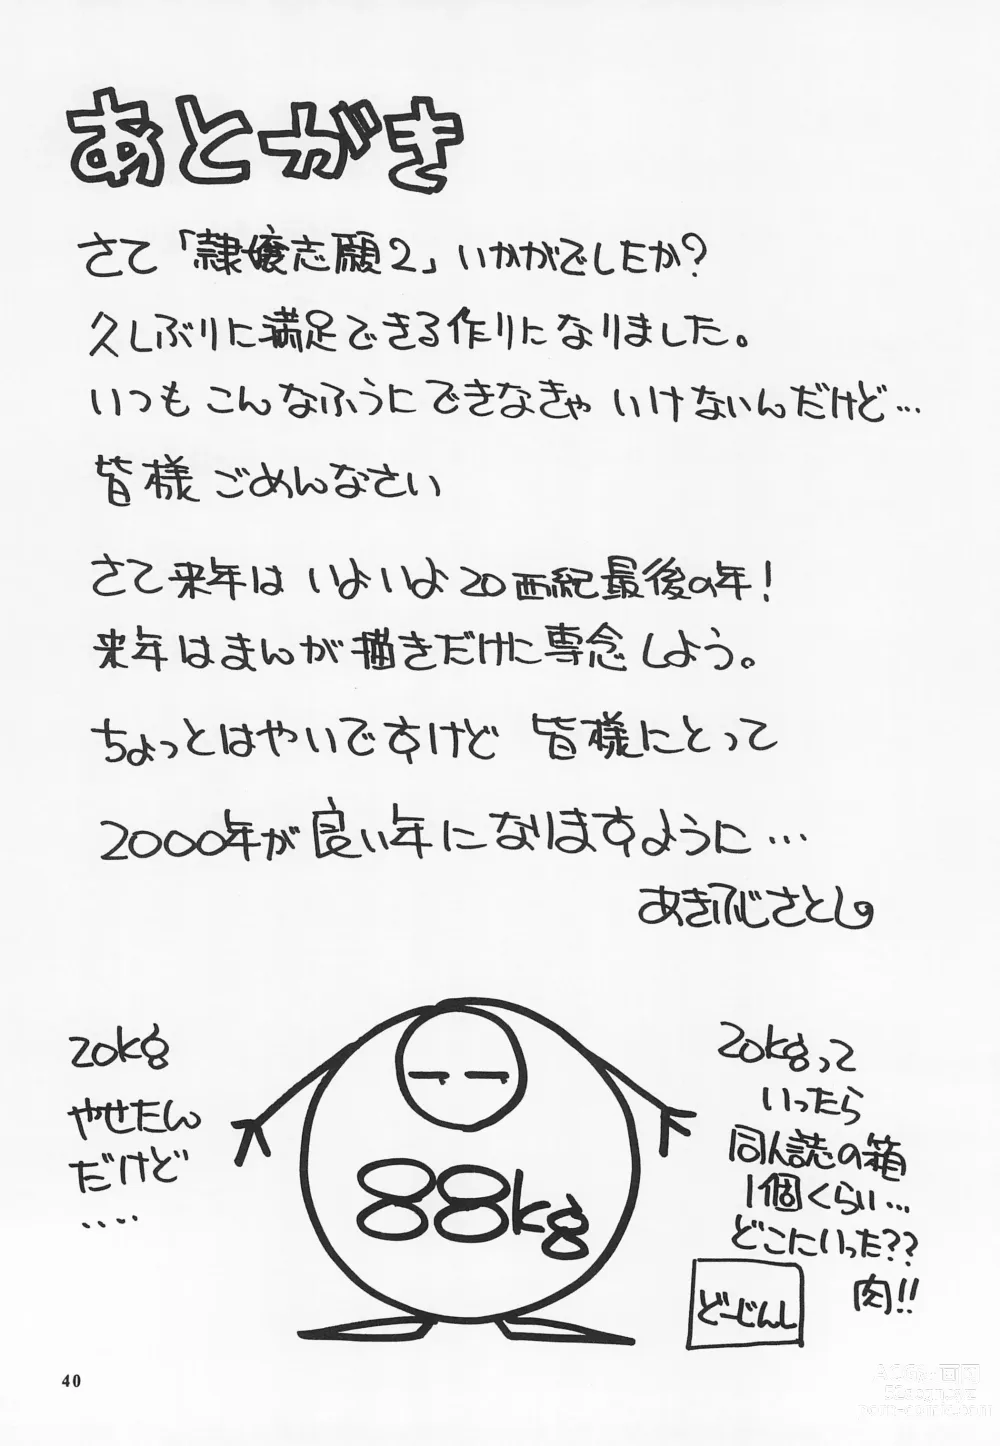 あとがき
さて「隷嬢志願2」いかがでしたか?
久しぶりに満足できる作りになりました。
いつも こんなふうにできなきゃ いけないんだけど…
皆様 ごめんなさい
さて来年は いよいよ20西紀最後の年!
来年はまんが描きだけに専念しよう。
ちょっとはやいですけど 皆様にとって
2000年が良い年になりますように…
あきふじさとし
20kg
やせたん
だけど
....
88kg
20kgって
いったら
同人誌の箱
1個くらい…
どこにいった??
肉!!
どーじんし
40